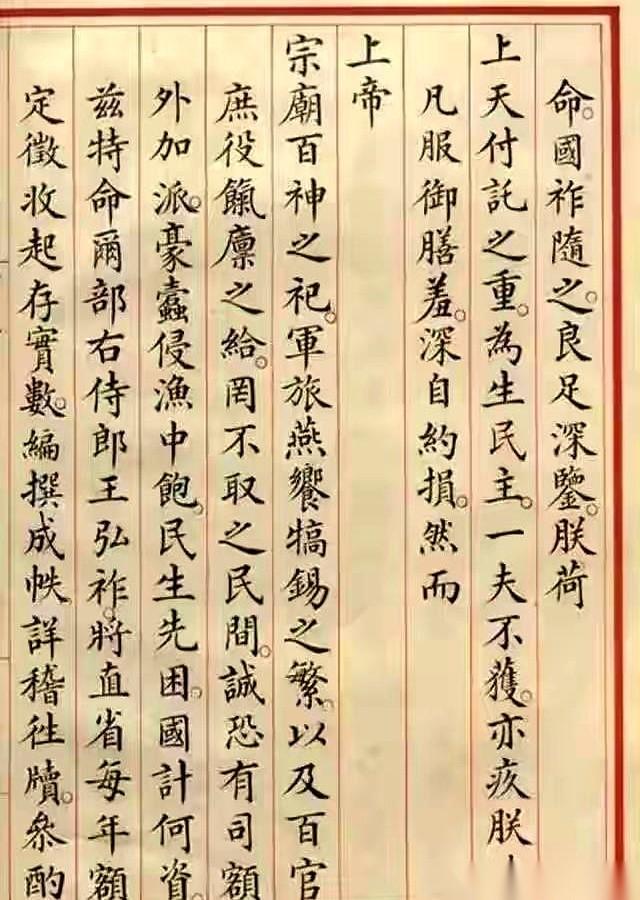 命。國祚隨之。良足深鑒。朕荷
上天付託之重。為生民主。一夫不獲。亦疚朕
凡服御膳羞。深自約損。然而
上帝
宗廟百神之祀。軍旅燕饗犒錫之繁。以及百官
庶役餼廩之給。罔不取之民間。誠恐有司額
外加派。豪蠹侵漁中飽。民生先困。國計何資。
茲特命爾部右侍郎王弘祚。將直省每年額
定徵收起存實數。編撰成帙。詳稽徃牘。叅酌